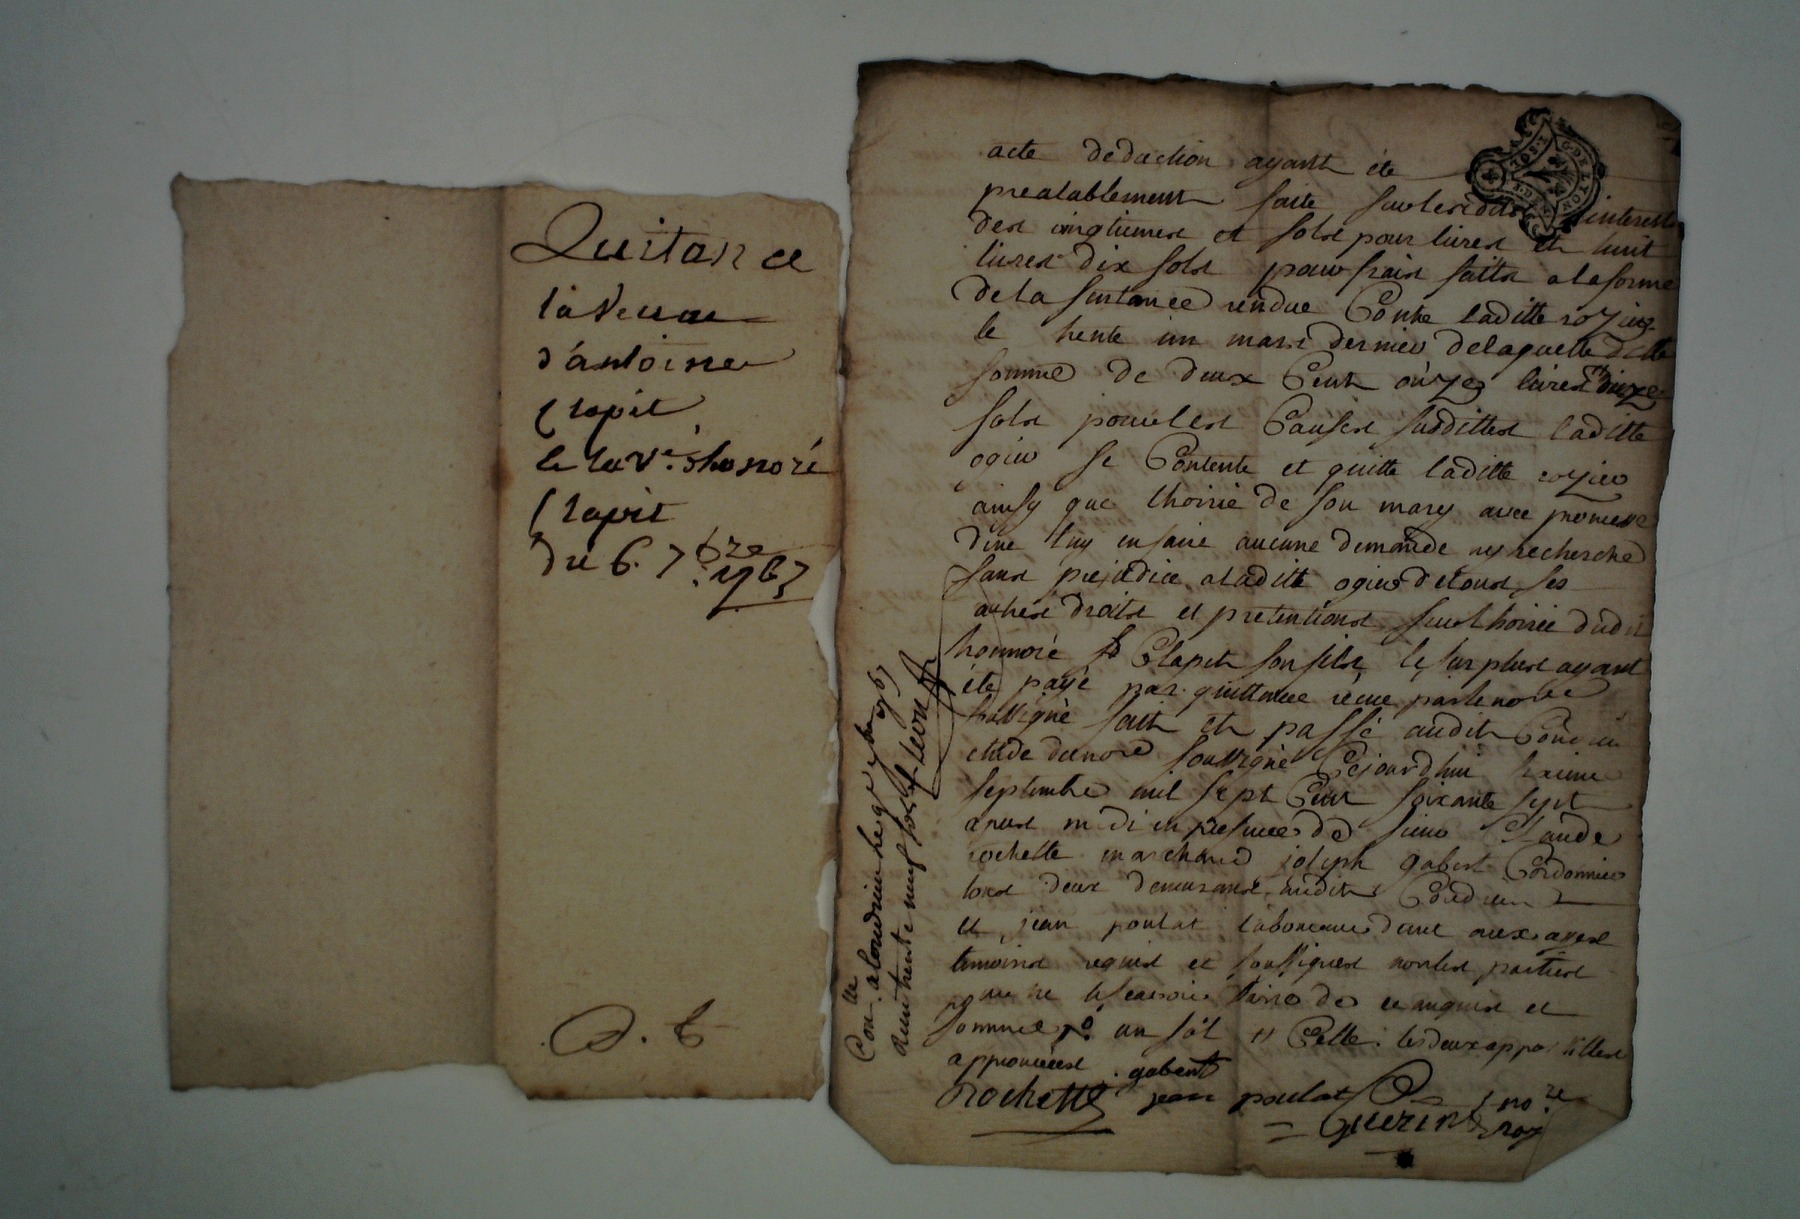 Quitance
la Veuve
d'antoine
Clapit
le la Ve. d'honoré
Clapit
du 6. 7bre
1767
acte deduction ayant ete
prealablement faite interest
des vingtiemes et sols pour livres et huit
livres dix sols pour frais faits a la forme
de la sentence rendue Contre laditte rozier
le trente un mars dernier de laquelle ditte
somme de deux Cent onze livres
sols pour les Causes susdittes laditte
ogier se Contente et quitte laditte rozier
ainsy que lhoirie de son mary avec promesse
dene luy en faire aucune demande ny recherche
sans prejudice a laditte ogier de tous ses
autres droits et pretentions sur lhoirie dudit
honnoré Clapit son fils, le surplus ayant
été payé par quittance reçue par le nore
soussigné fait et passé audit Condrieu
etude du nore soussigné Cejourdhui
septembre mil sept Cent soixante sept
apres midi en presence de sieur Claude
rochette marchand joseph gabert Cordonnier
tous deux demurans audit Condrieu
et jean poulat
temoins requis et soussignés non les parties
pour ne le scavoir faire de ce enquis et
sommé un sol Celle. les deux
approuvées. gabert
Rochette jean poulat
Guerin nore roy
Conlle a Condrieu le 7bre 1767